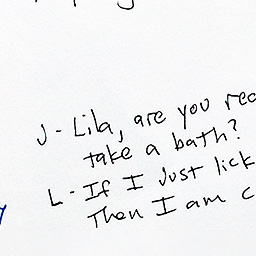 J - Lila, are you
take a bath?
L - If I Just lick
Then I am